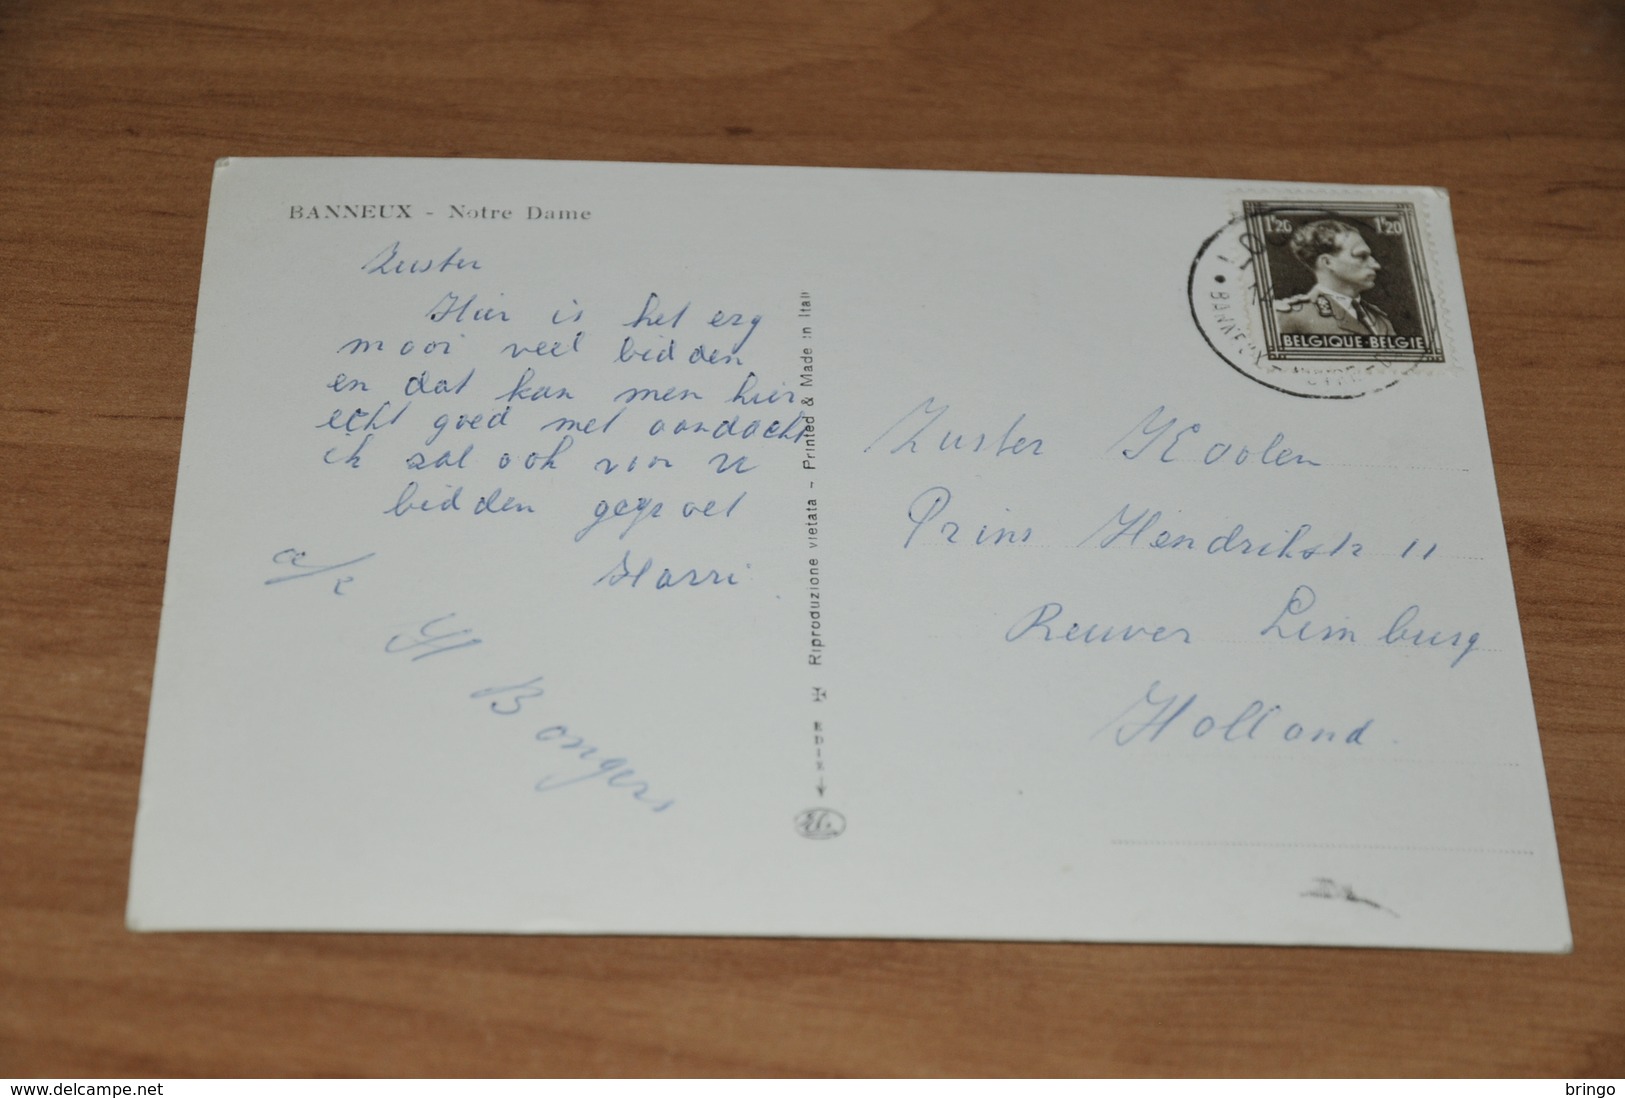 BANNEUX - Notre Dame
Zuster
Hier is het erg
mooi veel bidden
en dat kan men hier
echt goed met aandacht
ik zal ook voor u
bidden gegroet
Harri
a/z
H Bongers
Riproduzione vietata - Printed & Made in Itali
1F20 1F20
BELGIQUE-BELGIE
BANNEUX
Zuster Koolen
Prins Hendrikstr 11
Reuver Limburg
Holland.
delcampe.net
bringo